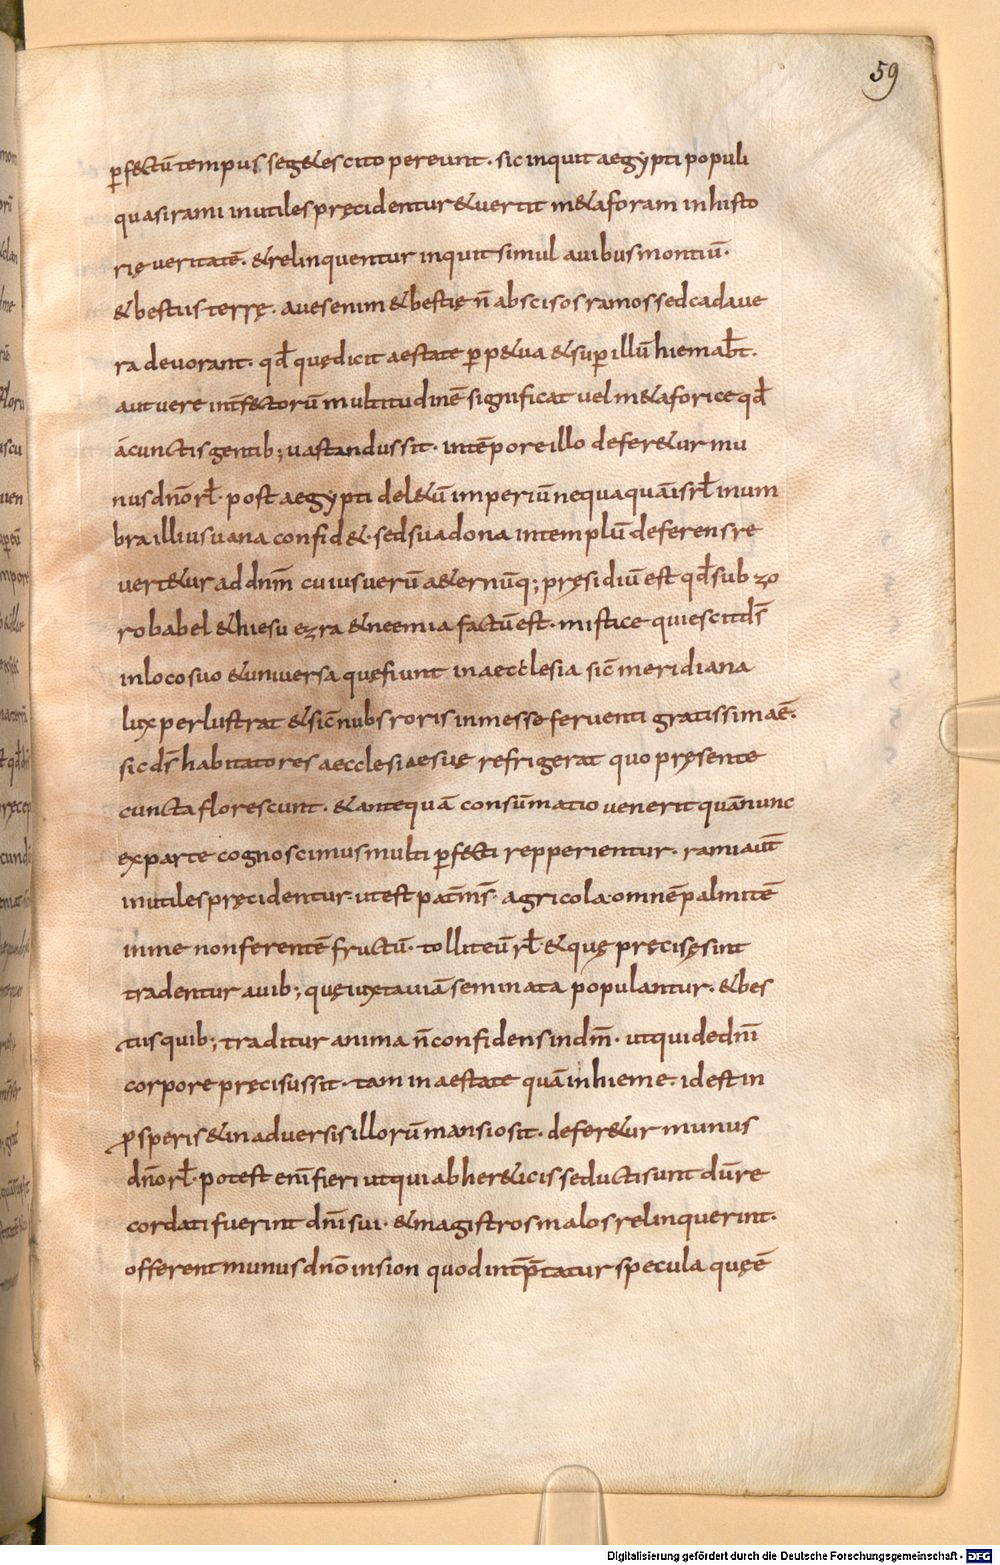 59
ꝑf&ctū tempus seg&es cito pereunt. sic inquit aegypti populi
quasi rami inutiles pręcidentur & vertit m&aforam in histo
rię veritatē. & relinquentur inquit simul avibus montiū.
& bestiis terrę. aves enim & bestię n̄ abscisos ramos sed cadave
ra devorant. qđ quę dicit aestate ꝑp&ua & suꝑ illū hiemabt̄.
aut vere int̄f&ctorū multitudinē significat vel m&aforice qđ
a cunctis gentib; vastandus sit. in tēpore illo defer&ur mu
nus dn̄o rł. post aegypti del&ū imperiū nequaquā isrł in um
bra illius vana confid&. sed sua dona in templū deferens re
vert&ur ad dnm̄ cuius verū a&ernūq; pręsidiū est qđ sub zo
robabel & hiesu ezra & neemia factū est. mistice quiescit ds̄
in loco suo & universa quę fiunt in aecclesia sic̄ meridiana
lux perlustrat & sic̄ nubs roris in messe ferventi gratissima ē.
sic ds̄ habitatores aecclesiae suę refrigerat quo pręsente
cuncta florescunt. & antequā consūmatio venerit quā nunc
ex parte cognoscimus multi ꝑf&cti repperientur. rami aut̄
inutiles pręcidentur. ut est pat̄ ms̄ agricola. omnē palmitē
in me non ferentē fructū. tollit eū rł. & quę pręcisę sint
tradentur avib; quę iuxta viā seminata populantur. & bes
tiis quib; traditur anima n̄ confidens in dm̄. ut qui de dn̄i
corpore pręcisus sit. tam in aestate quā in hieme. id est in
ꝓsperis & in adversis illorū mansio sit. defer&ur munus
dn̄o rł. potest enī fieri ut qui ab her&icis seducti sunt & dūre
cordati fuerint dn̄i sui. & magistros malos relinquerint.
offerent munus dn̄o in sion quod int̄p̄tatur specula quę ē
Digitalisierung gefördert durch die Deutsche Forschungsgemeinschaft - DFG